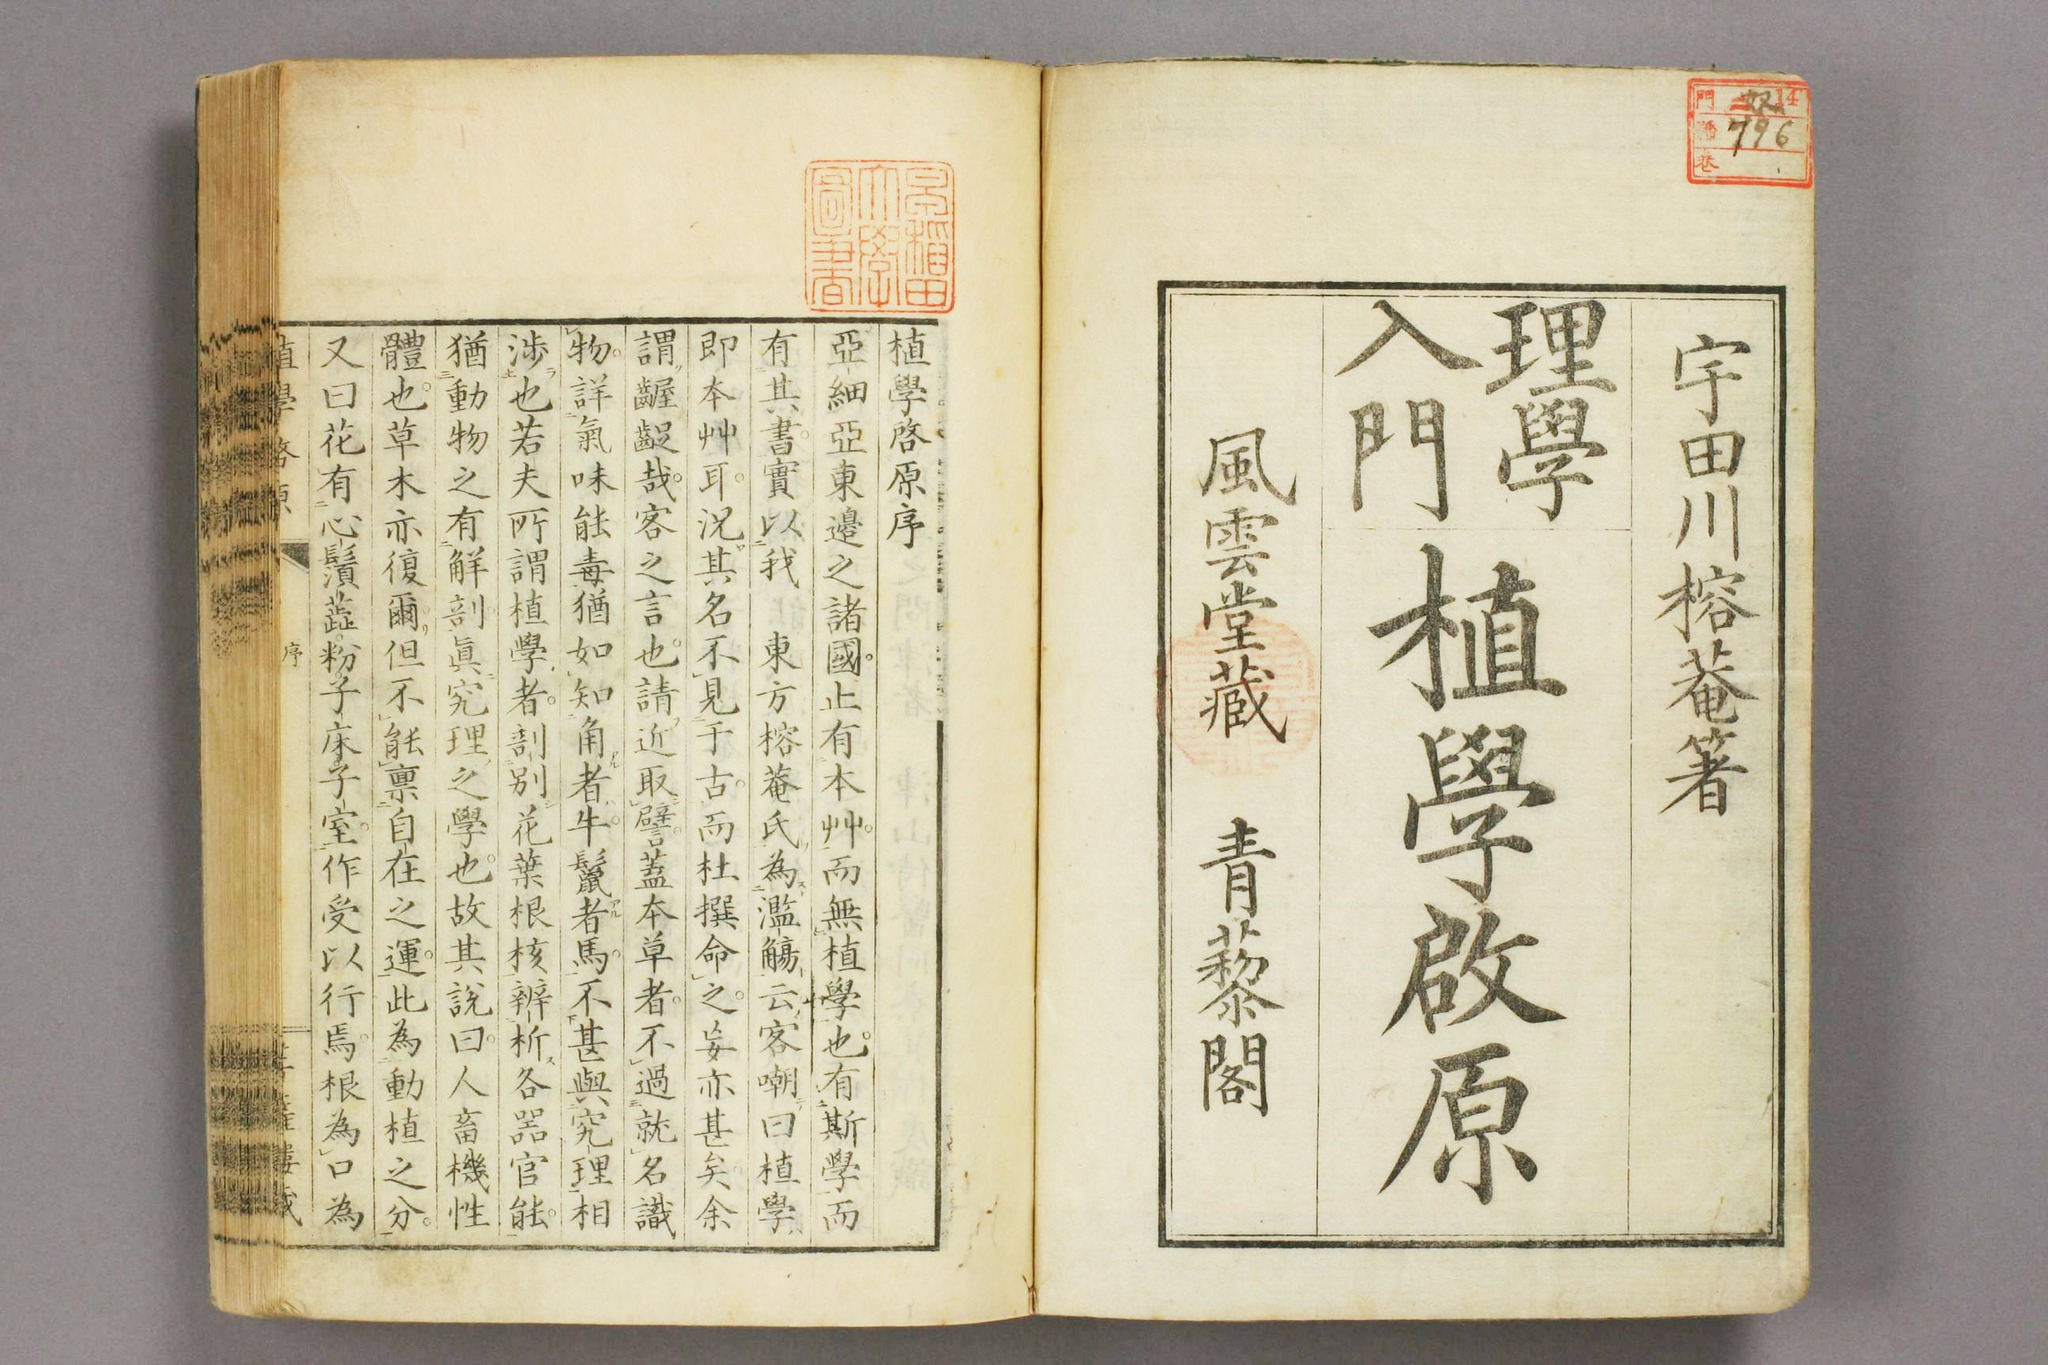 宇田川榕菴著
理學
入門
植學啟原
風雲堂藏 青藜閣
門 14
號 796
卷
早稲田
大學
圖書
植學啓原序
亞細亞東邊之諸國。止有本艸。而無植學也。有斯學而
有其書。實以我 東方榕菴氏為濫觴云。客嘲曰植學
即本艸耳。況其名不見于古。而杜撰命之。妄亦甚矣。余
謂齷齪哉。客之言也。請近取譬。蓋本草者。不過就名識
物。詳氣味能毒。猶如知角者牛。鬣者馬。不甚與究理相
渉也若夫所謂植學者。剖別花葉根核。辨析各器官能。
猶動物之有解剖。眞究理之學也。故其說曰。人畜機性
體也。草木亦復爾。但不能稟自在之運。此為動植之分。
又曰花有心鬚蕋。粉子床子室。作受以行焉。根為口為
植學啓原
序